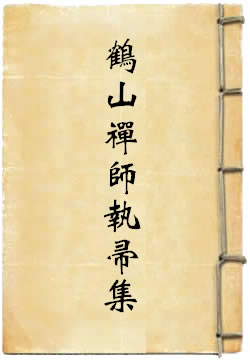 鶴山禪師執帚集